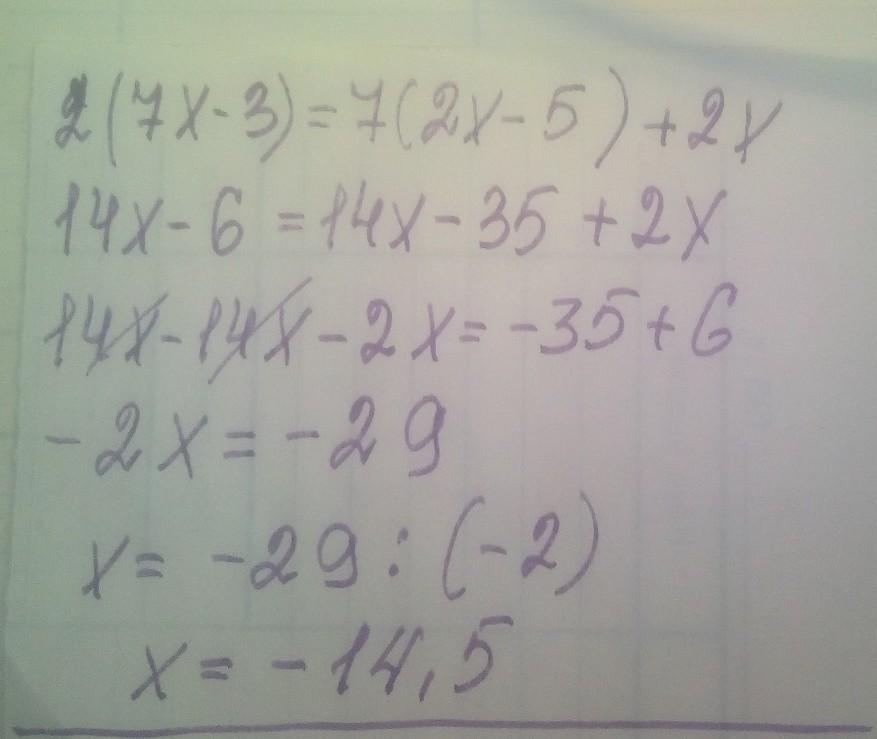 2(7x-3)=7(2x-5)+2x
14x-6=14x-35+2x
14x-14x-2x=-35+6
-2x=-29
x=-29:(-2)
x=-14,5